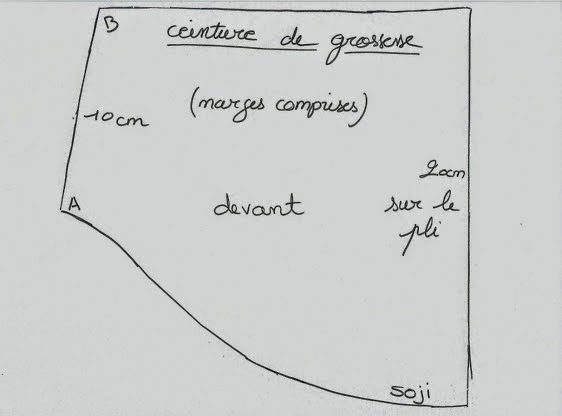 B
ceinture de grossesse
(marges comprises)
10cm
20cm
A
devant
sur le
pli
soji